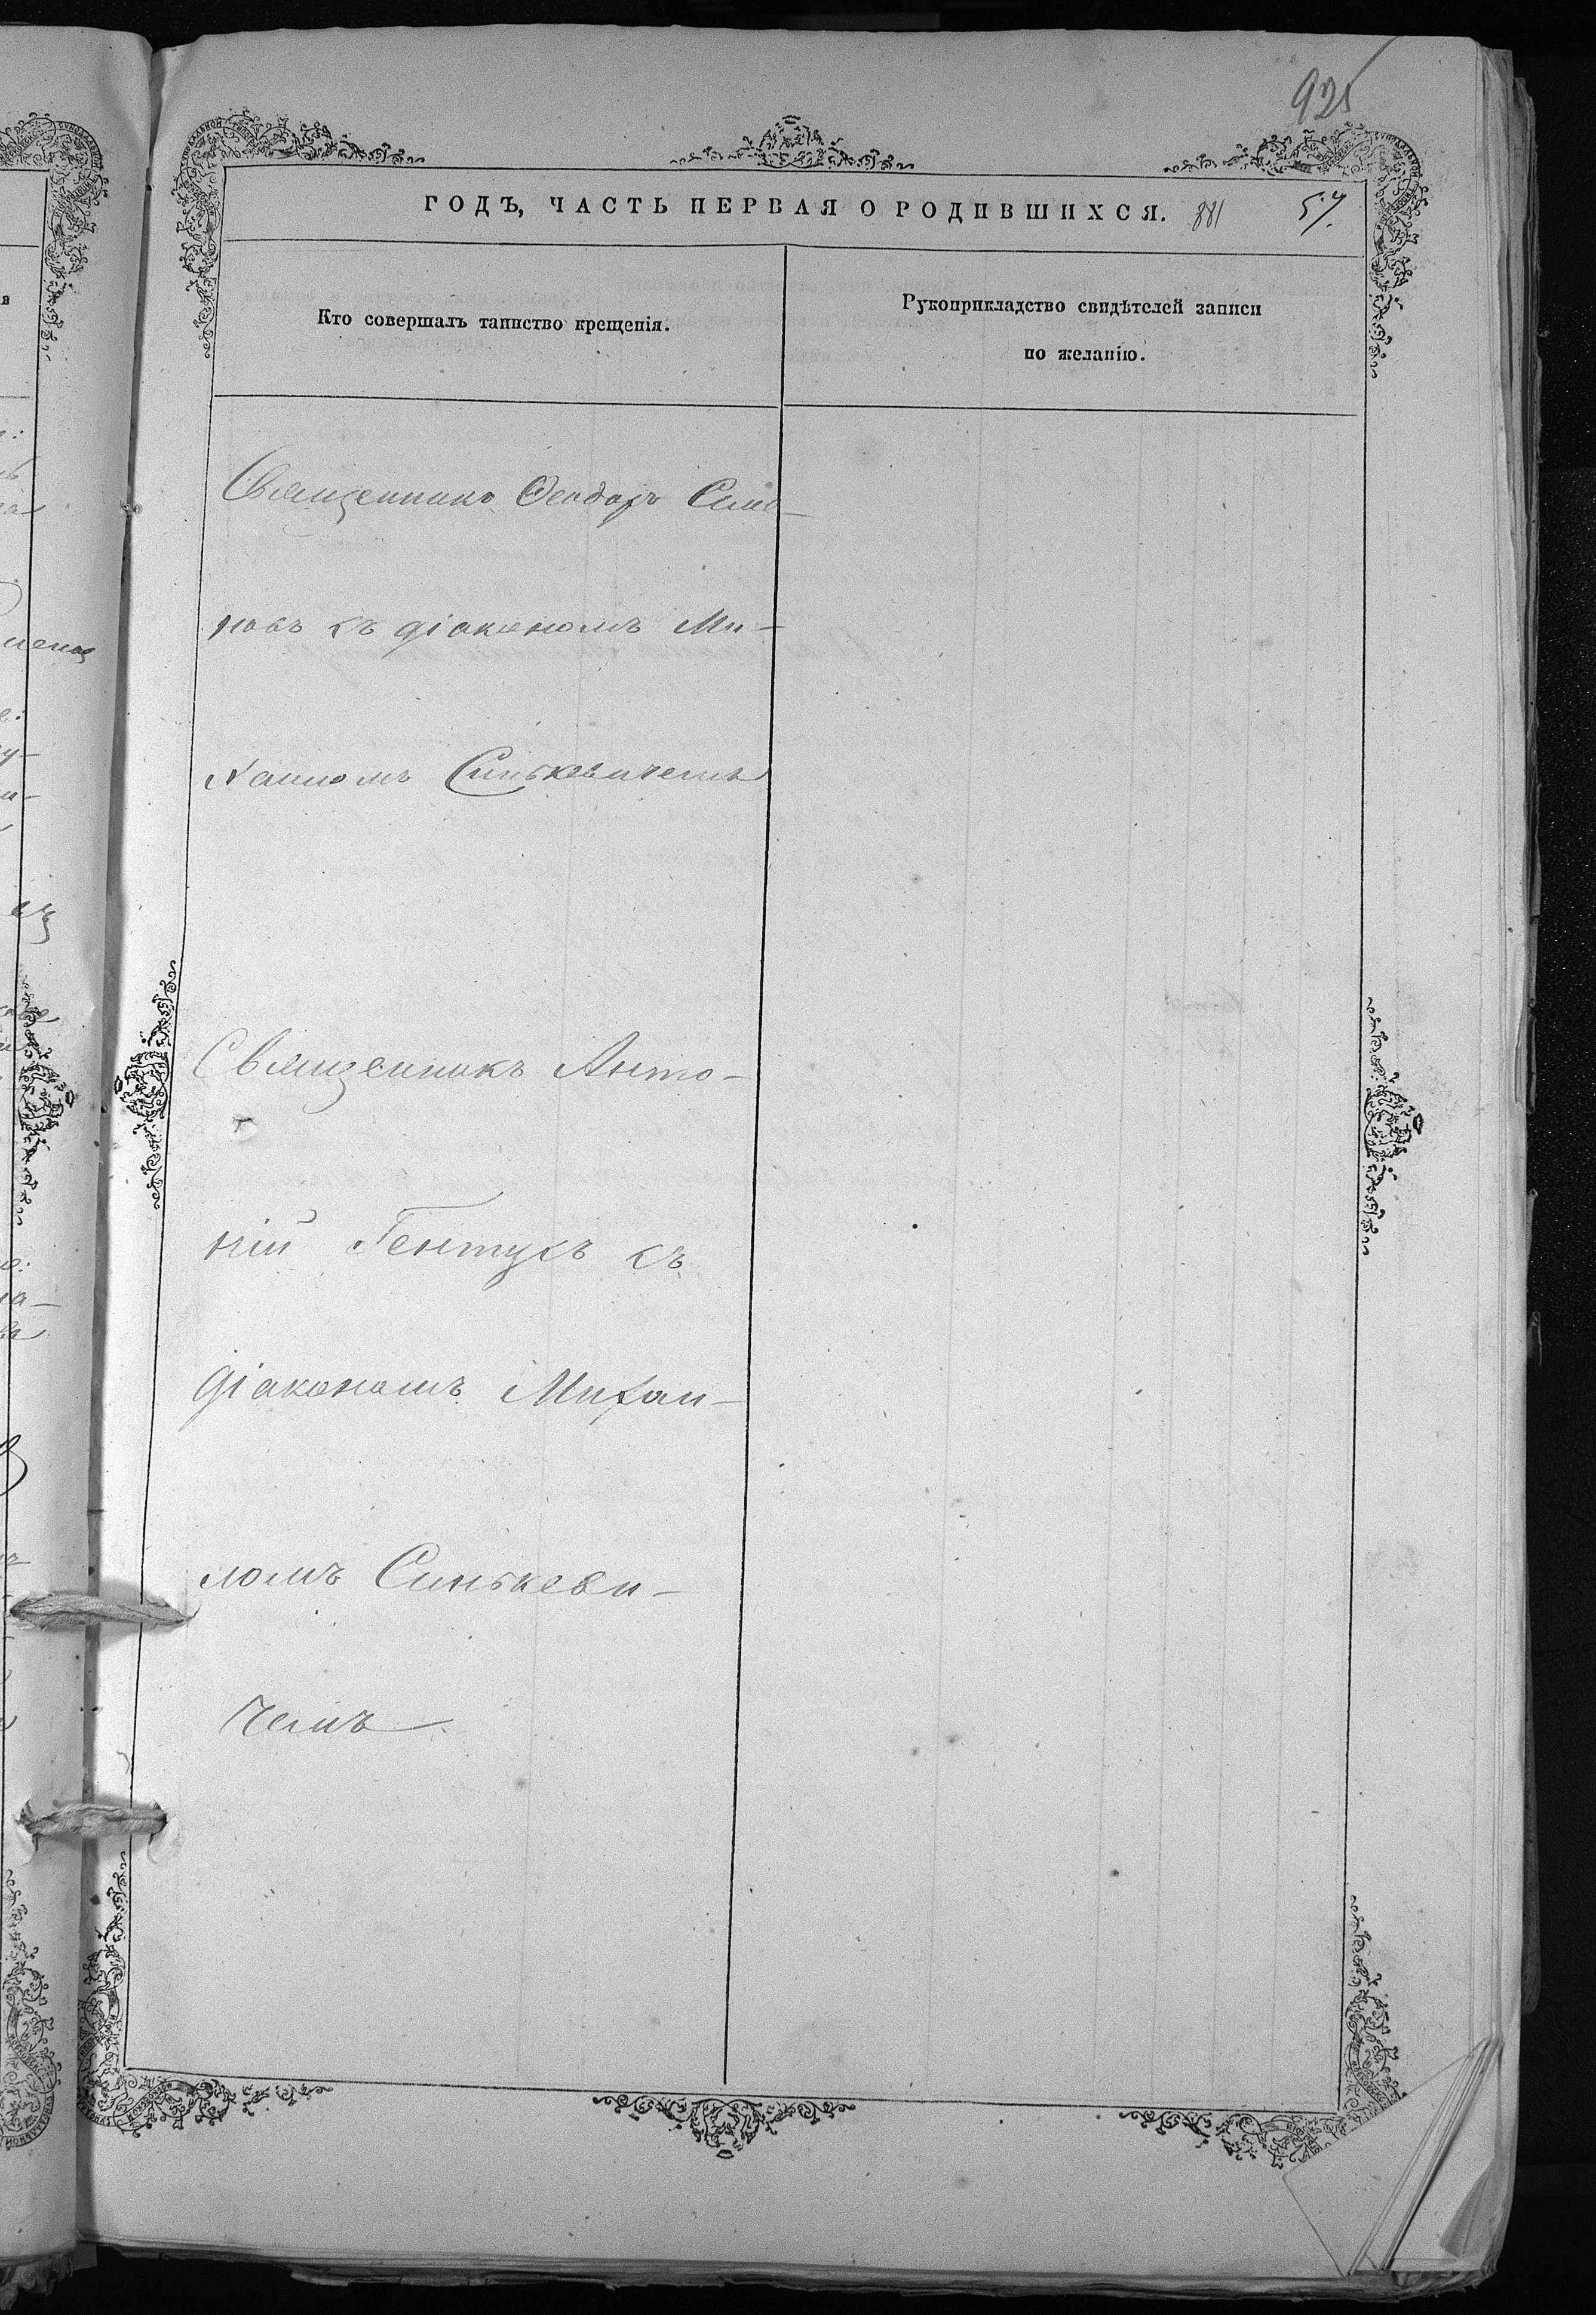 925
ГОДЪ, ЧАСТЬ ПЕРВАЯ О РОДИВШИХСЯ. 881 57.
Кто совершалъ таинство крещенія.
Рукоприкладство свидѣтелей записи
по желанію.
Священникъ Ѳеодоръ Семе-
новъ съ діакономъ Ми-
хаиломъ Синькевичемъ
Священникъ Анто-
ній Гентукъ съ
діакономъ Михаи-
ломъ Синькеви-
чемъ